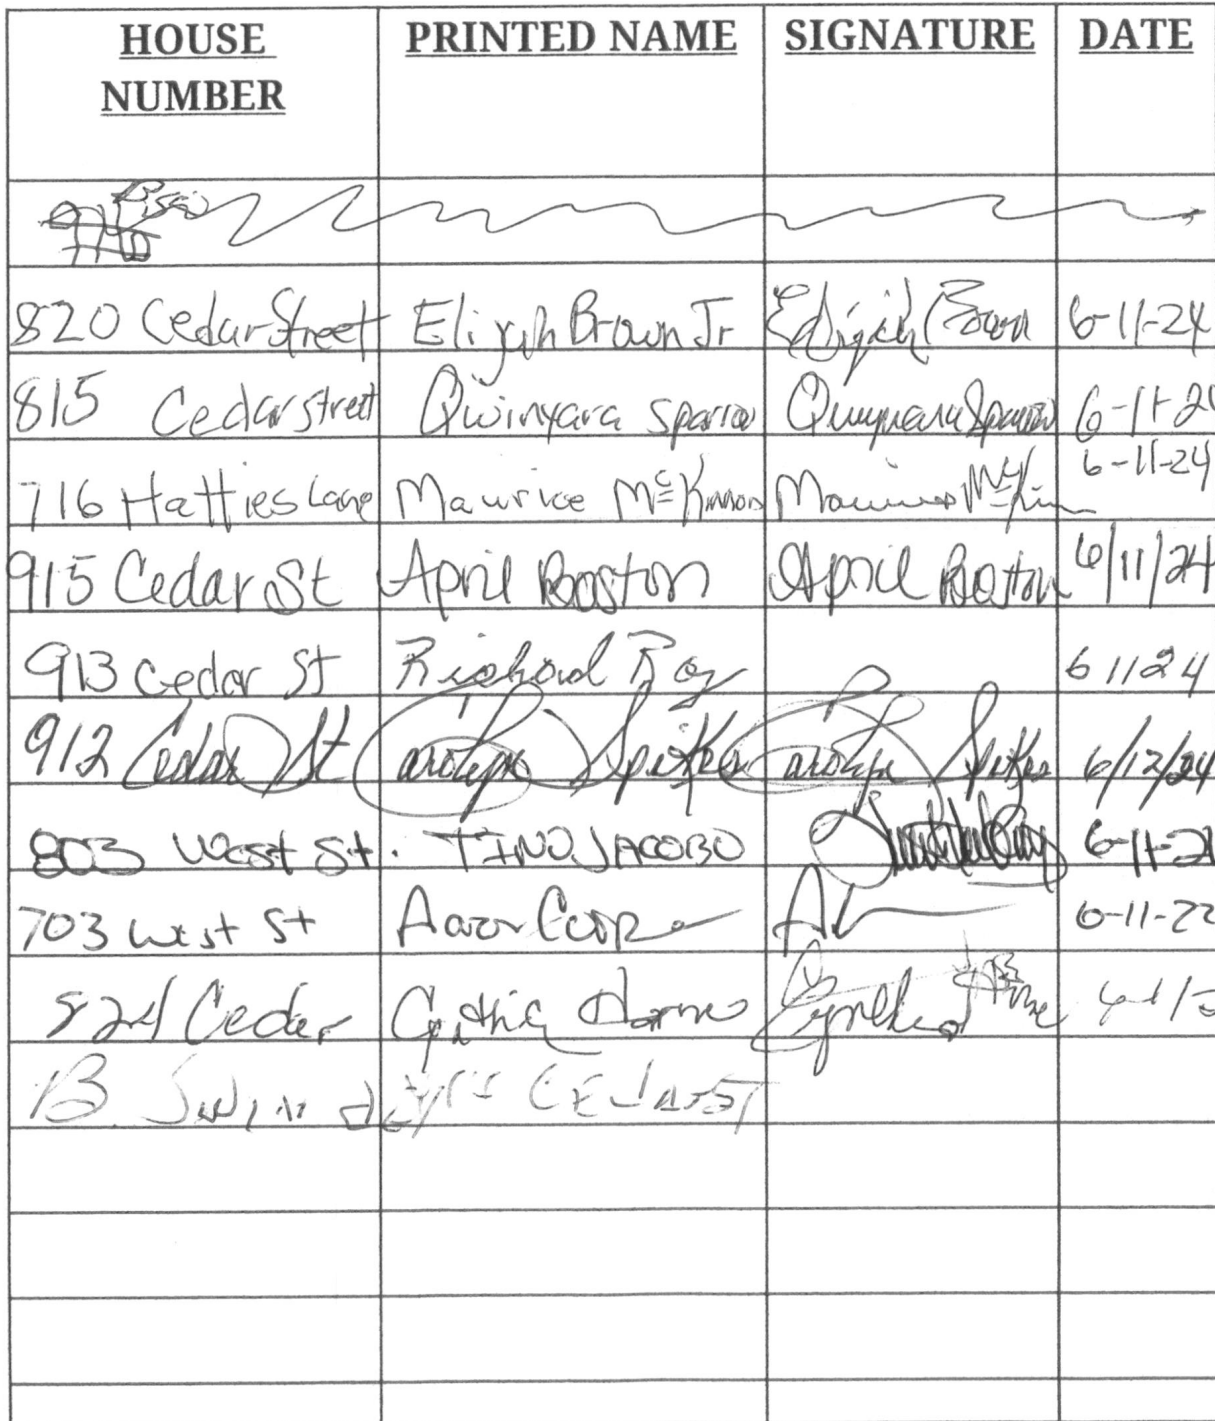 HOUSE NUMBER PRINTED NAME SIGNATURE DATE
820 Cedar Street Elijah Brown Jr Elijah Brown 6-11-24
815 Cedar street Qwinyara Sparrow Qwinyara Sparrow 6-11-2
716 Hatties Lane Maurice McKinnon Maurice 6-11-24
915 Cedar St April Boston April Boston 6/11/24
913 Cedar St Richard Roy 6 11 24
912 Cedar St Carolyn Spikes Carolyn Spikes 6/12/24
803 West St. TINO JACOBO 6-11-2
703 West St Aaron Cooper 6-11-22
824 Cedar Cynthia Cynthia
B. CEDAR ST